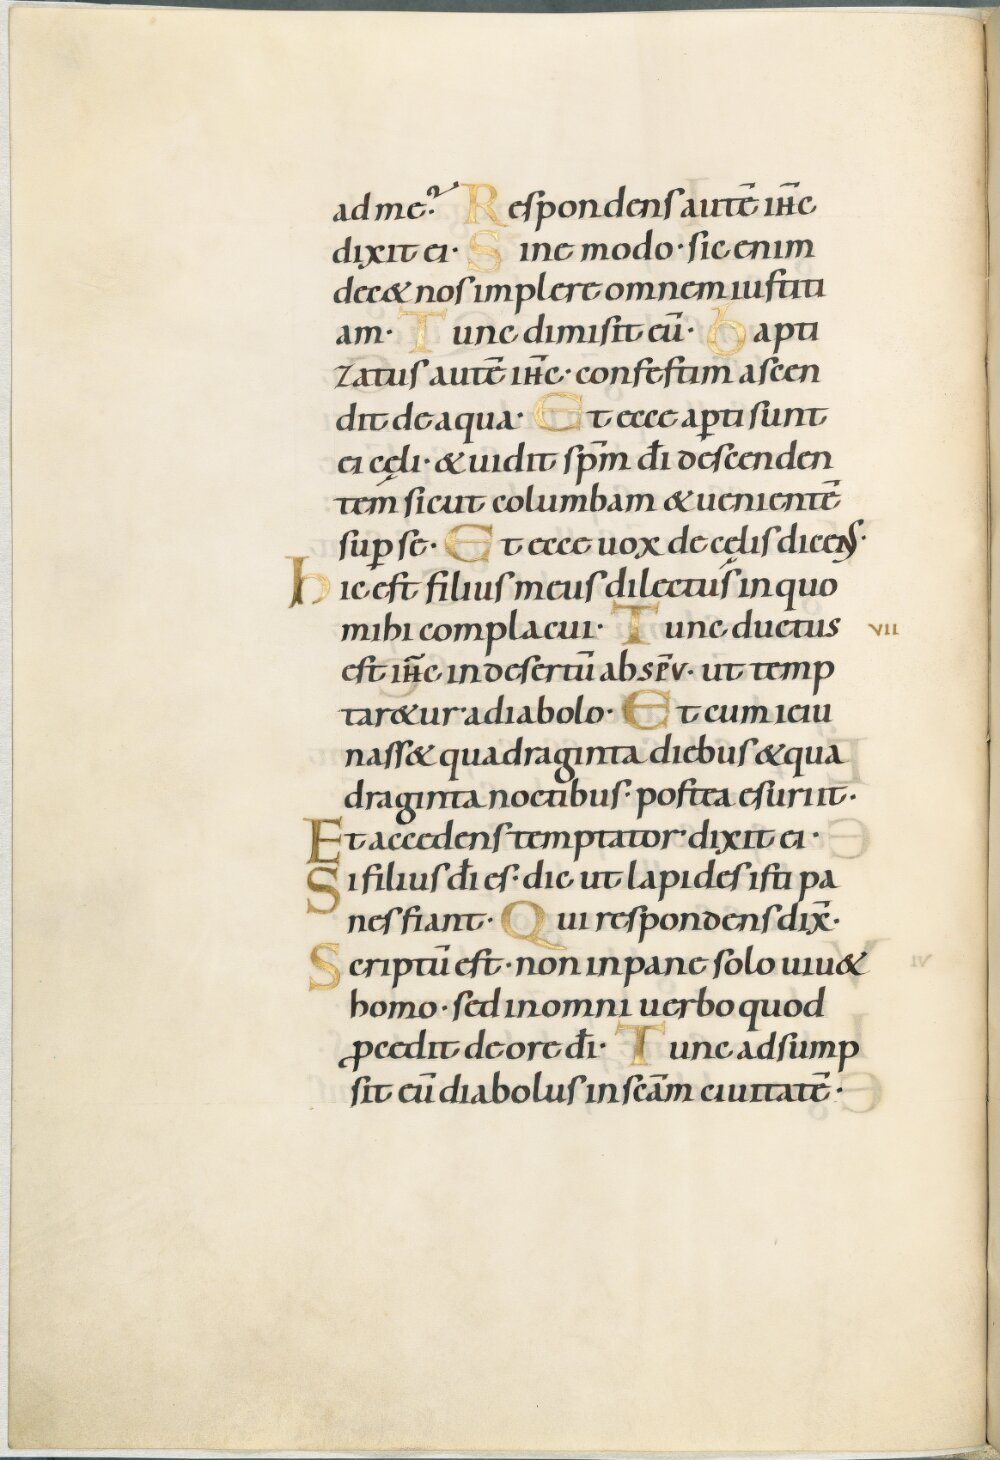 ad me? Respondens autē ih̄c
dixit ei· Sine modo· sic enim
dec& nos implere omnem iustiti
am· Tunc dimisit eū· bapti
zatus autē ih̄c· confestim ascen
dit de aqua· Et ecce ap̱ti sunt
ei cęli· & uidit sp̄m dī descenden
tem sicut columbam & uenientē
sup̱ se· Et ecce uox de cęlis dicens·
hic est filius meus dilectus in quo
mihi complacui· Tunc ductus
VII
est ih̄c in desertū ab sp̄u· ut temp
tar&ur a diabolo· Et cum ieiu
nass& quadraginta diebus & qua
draginta noctibus· postea esuriit·
Et accedens temptator dixit ei·
Si filius dī es· dic ut lapides isti pa
nes fiant· Qui respondens dix̄·
Scriptū est· non in pane solo uiu&
homo· sed in omni uerbo quod
ꝓcedit de ore dī· Tunc adsump
sit eū diabolus in scām ciuitatē·